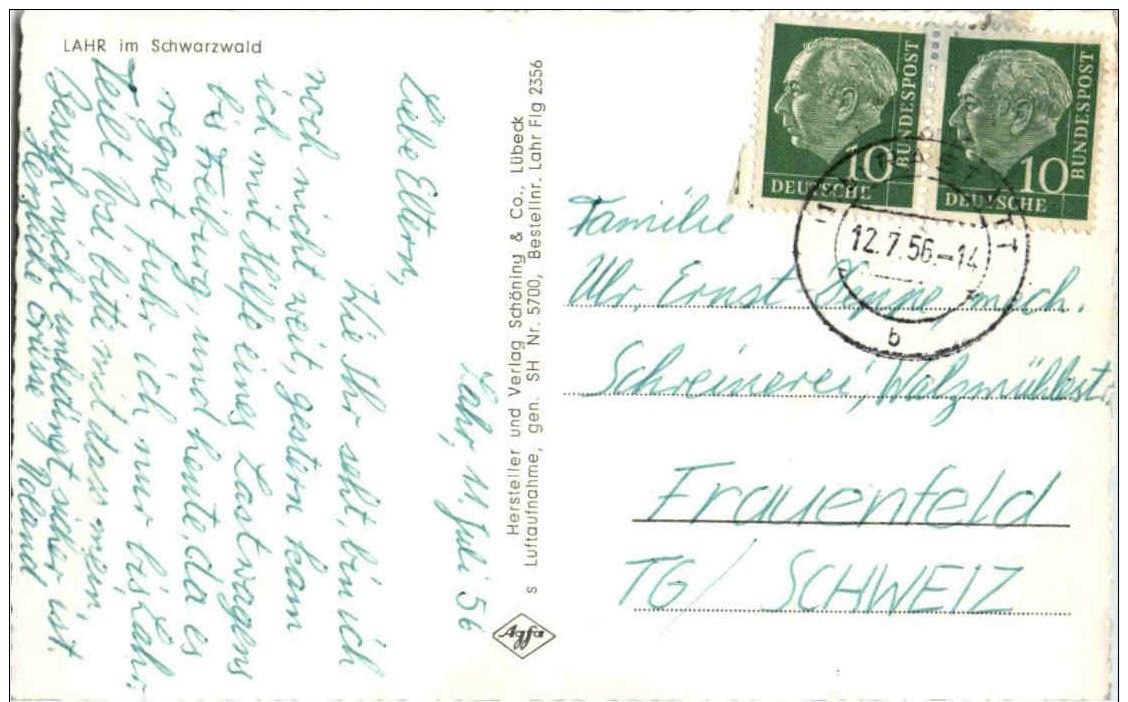 LAHR im Schwarzwald
Lahr, 11. Juli 56
Liebe Eltern,
Wie Ihr seht, bin ich
noch nicht weit, gestern kam
ich mit Hilfe eines Lastwagens
bis Freiburg, und heute, da es
regnet fuhr ich nur bis Lahr.
Teilt Rosi bitte mit dass mein
Besuch nicht unbedingt sicher ist.
Herzliche Grüsse Roland
Hersteller und Verlag Schöning & Co., Lübeck
s Luftaufnahme, gen. SH Nr. 5700, Bestellnr. Lahr Flg 2356
Agfa
10
DEUTSCHE
BUNDESPOST
10
DEUTSCHE
BUNDESPOST
12.7.56.-14
b
Familie
Ernst mech.
Schreinerei, Walzmühlestr.
Frauenfeld
TG/ SCHWEIZ